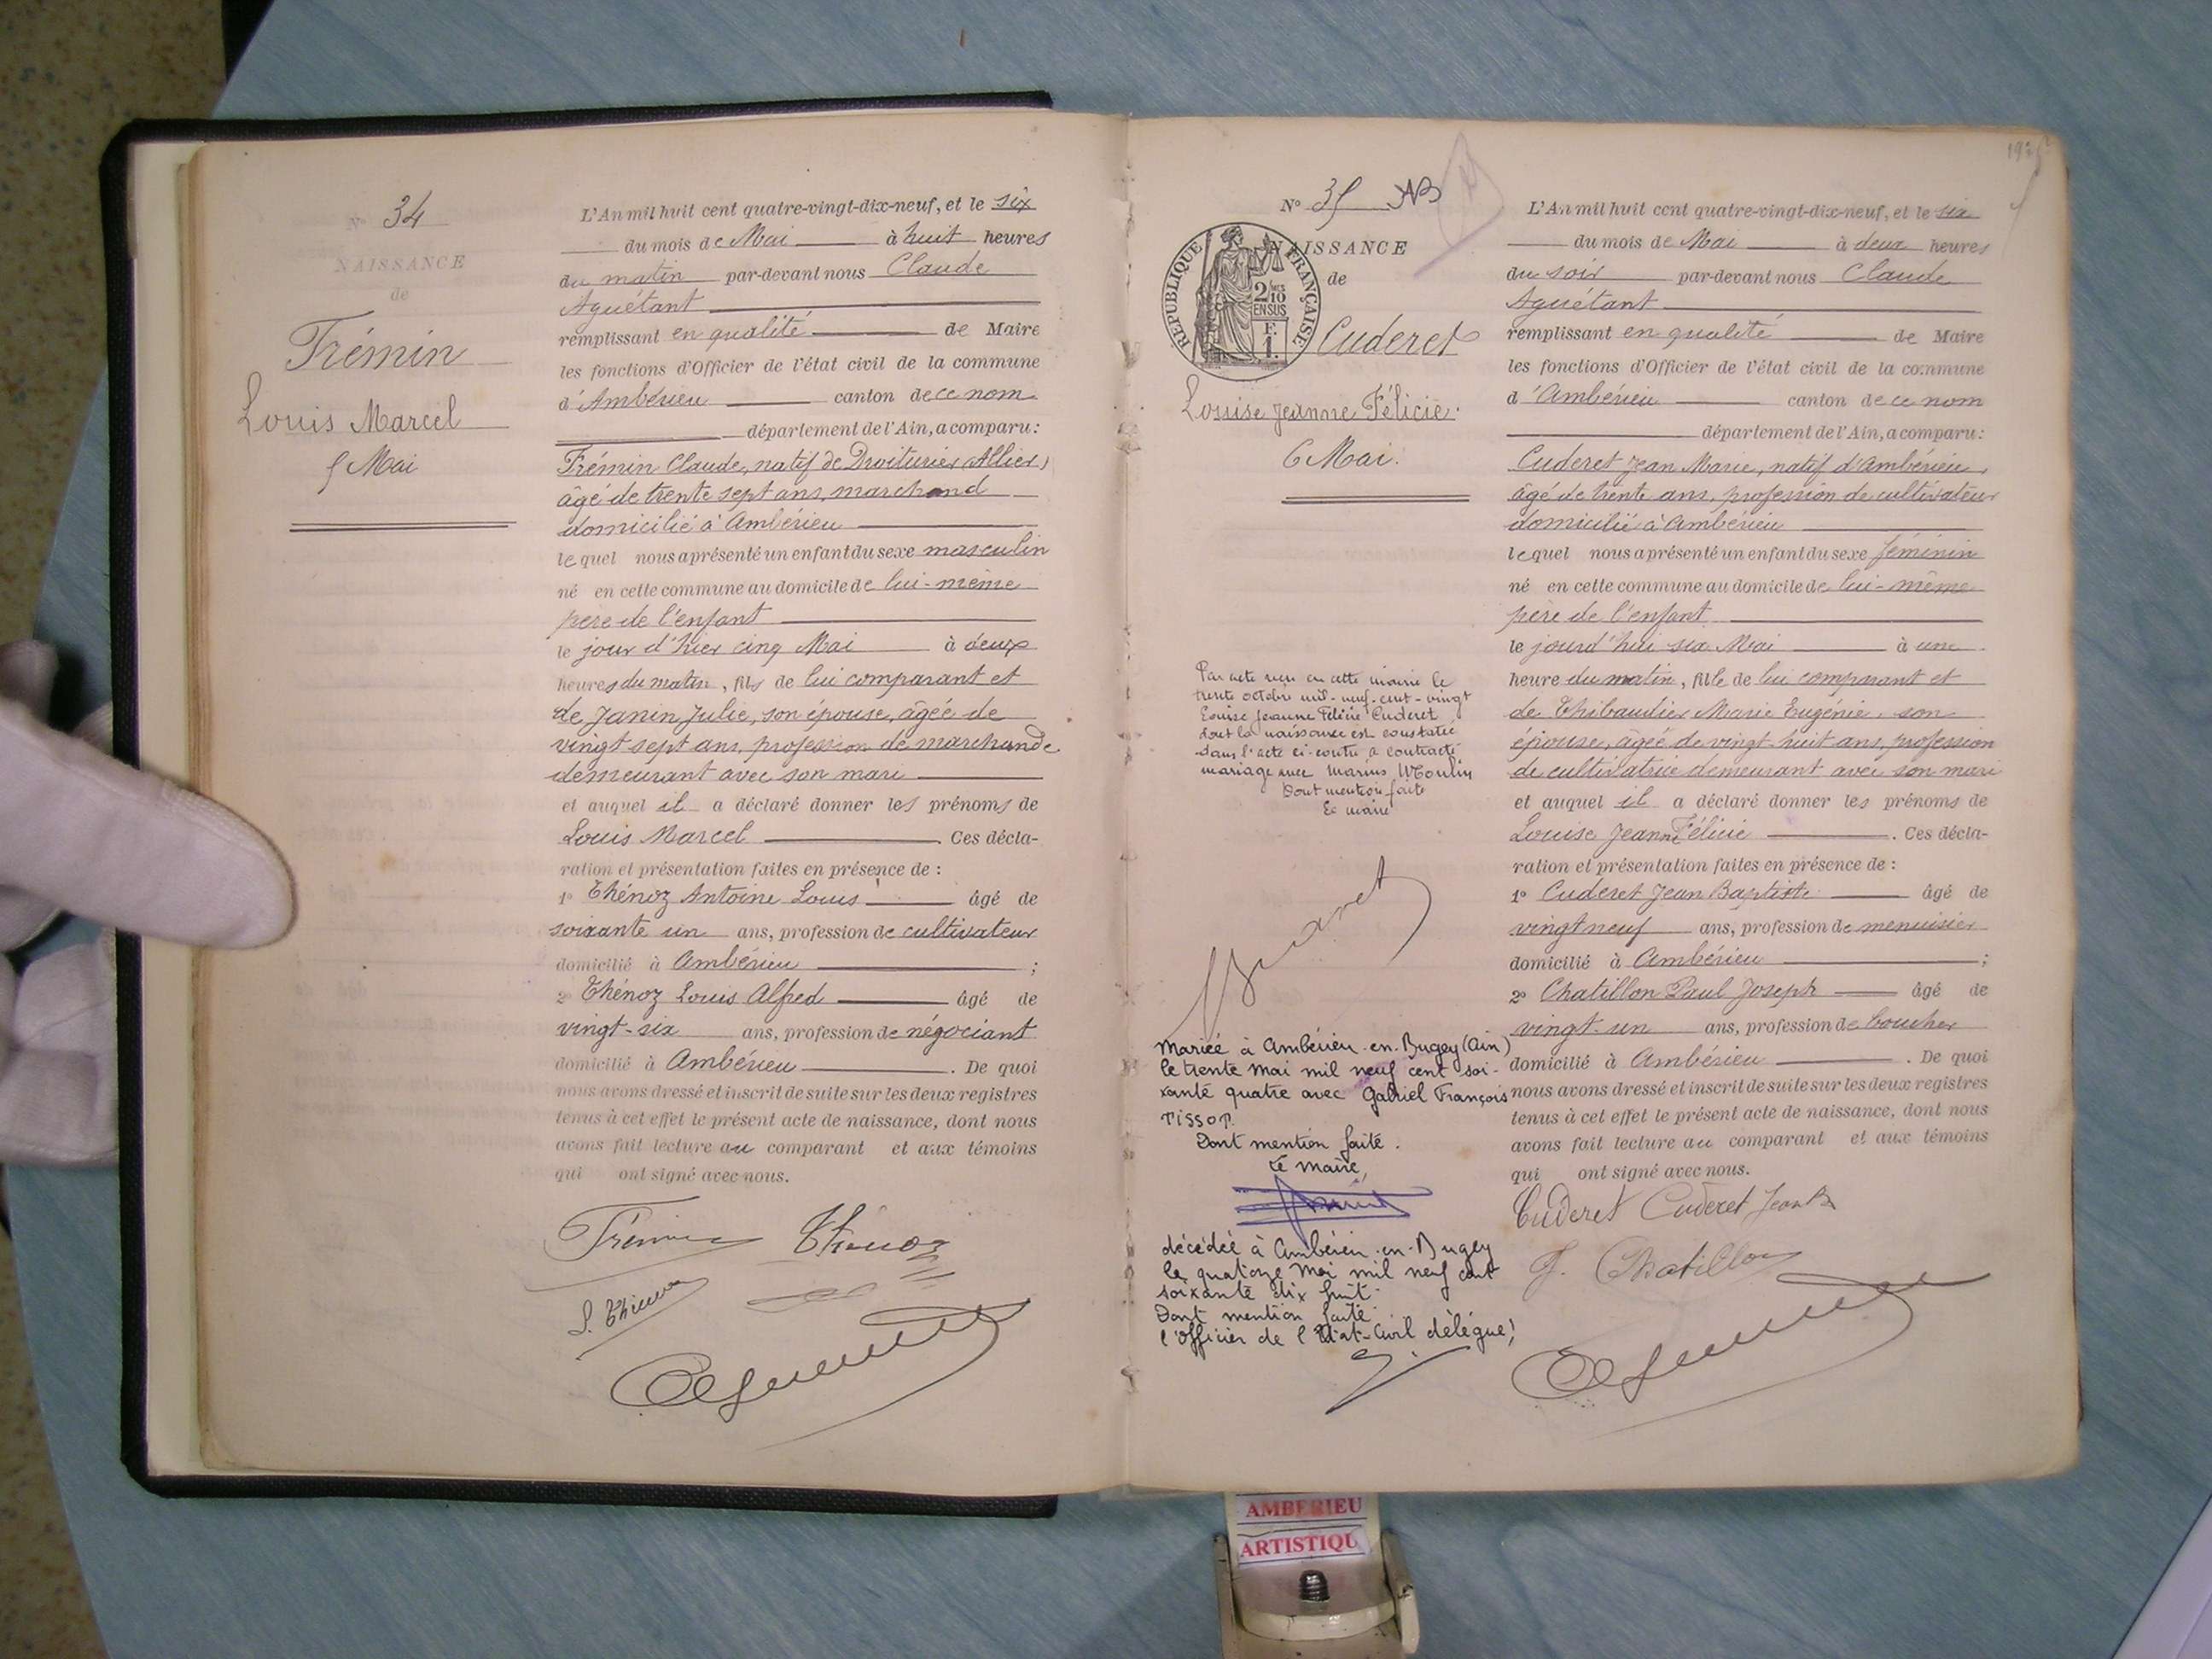 N° 34
NAISSANCE
de
Frémin
Louis Marcel
5 Mai
L'An mil huit cent quatre-vingt-dix-neuf, et le six
du mois de Mai à huit heures
du matin par-devant nous Claude
Aguétant
remplissant en qualité de Maire
les fonctions d'Officier de l'état civil de la commune
d'Ambérieu canton de ce nom
département de l'Ain, a comparu :
Frémin Claude, natif de Droiturier (Allier)
âgé de trente sept ans, marchand
domicilié à Ambérieu
lequel nous a présenté un enfant du sexe masculin
né en cette commune au domicile de lui-même
père de l'enfant
le jour d'hier cinq Mai à deux
heures du matin, fils de lui comparant et
de Janin Julie, son épouse, âgée de
vingt sept ans, profession de marchande
demeurant avec son mari
et auquel il a déclaré donner les prénoms de
Louis Marcel . Ces décla-
ration et présentation faites en présence de :
1° Thénoz Antoine Louis âgé de
soixante un ans, profession de cultivateur
domicilié à Ambérieu ;
2° Thénoz Louis Alfred âgé de
vingt-six ans, profession de négociant
domicilié à Ambérieu . De quoi
nous avons dressé et inscrit de suite sur les deux registres
tenus à cet effet le présent acte de naissance, dont nous
avons fait lecture au comparant et aux témoins
qui ont signé avec nous.
Frémin Thénoz
L. Thénoz
N° 35 NB
NAISSANCE
de
REPUBLIQUE FRANÇAISE
2/10 EN SUS
F. 1.
Cuderet
Louise Jeanne Félicie.
6 Mai.
Par acte reçu en cette mairie le
trente octobre mil-neuf-cent-vingt
Louise Jeanne Félicie Cuderet
dont la naissance est constatée
dans l'acte ci-contre a contracté
mariage avec Marius Moulin
Dont mention faite
Le maire
Mariée à Ambérieu-en-Bugey (Ain)
le trente mai mil neuf cent soi-
xante quatre avec Gabriel François
TISSOT.
Dont mention faite.
Le Maire,
décédée à Ambérieu-en-Bugey
le quatorze Mai mil neuf cent
soixante dix huit.
Dont mention faite
l'Officier de l'Etat-Civil délégué,
L'An mil huit cent quatre-vingt-dix-neuf, et le six
du mois de Mai à deux heures
du soir par-devant nous Claude
Aguétant
remplissant en qualité de Maire
les fonctions d'Officier de l'état civil de la commune
d'Ambérieu canton de ce nom
département de l'Ain, a comparu :
Cuderet Jean Marie, natif d'Ambérieu,
âgé de trente ans, profession de cultivateur
domicilié à Ambérieu
lequel nous a présenté un enfant du sexe féminin
né en cette commune au domicile de lui-même
père de l'enfant
le jourd'hui six Mai à une
heure du matin, fille de lui comparant et
de Thibaudier Marie Eugénie, son
épouse, âgée de vingt-huit ans, profession
de cultivatrice demeurant avec son mari
et auquel il a déclaré donner les prénoms de
Louise Jeanne Félicie . Ces décla-
ration et présentation faites en présence de :
1° Cuderet Jean Baptiste âgé de
vingt neuf ans, profession de menuisier
domicilié à Ambérieu ;
2° Chatillon Paul Joseph âgé de
vingt-un ans, profession de boucher
domicilié à Ambérieu . De quoi
nous avons dressé et inscrit de suite sur les deux registres
tenus à cet effet le présent acte de naissance, dont nous
avons fait lecture au comparant et aux témoins
qui ont signé avec nous.
Cuderet Cuderet Jean B
J. Chatillon
AMBERIEU
ARTISTIQU